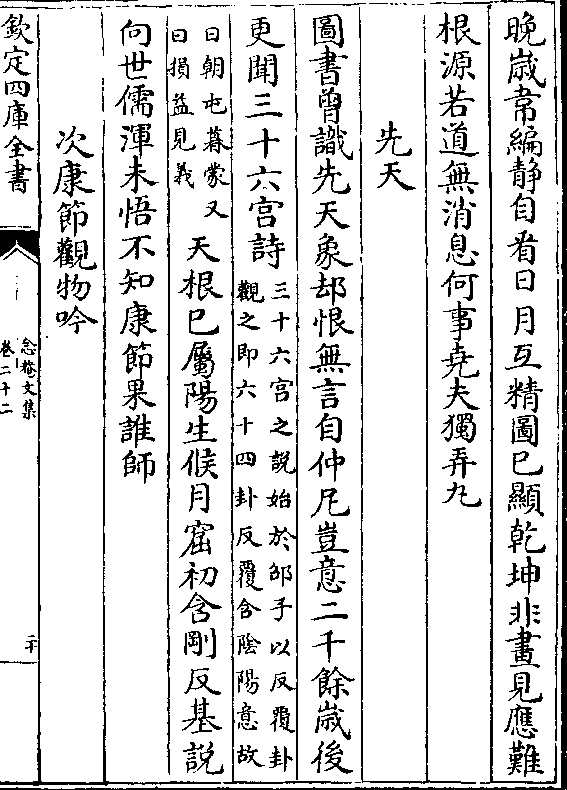 晩歳韋編静自看日月互精圖已顯乾坤非畫見應難
根源若道無消息何事堯夫獨弄丸
先天
圖書曽識先天象却恨無言自仲尼豈意二千餘歳後
更聞三十六宫詩
三十六宫之説始於邵子以反覆卦
觀之即六十四卦反覆含陰陽意故
曰朝屯暮蒙又
曰損益見義
天根已屬陽生候月窟初含剛反基説
向世儒渾未悟不知康節果誰師
次康節觀物吟
欽定四庫全書
念菴文集
卷二十二
二十